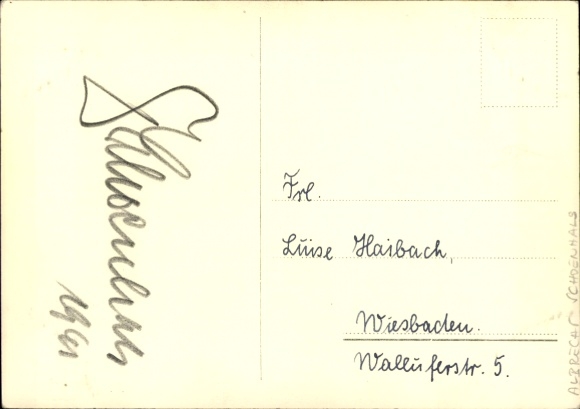 Schoenhals
1941
Frl.
Luise Haibach,
Wiesbaden.
Walluferstr. 5.
ALBRECHT SCHOENHALS